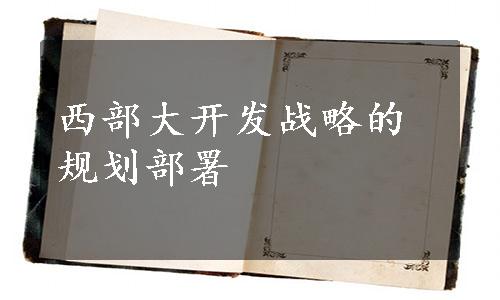 西部大开发战略的
规划部署